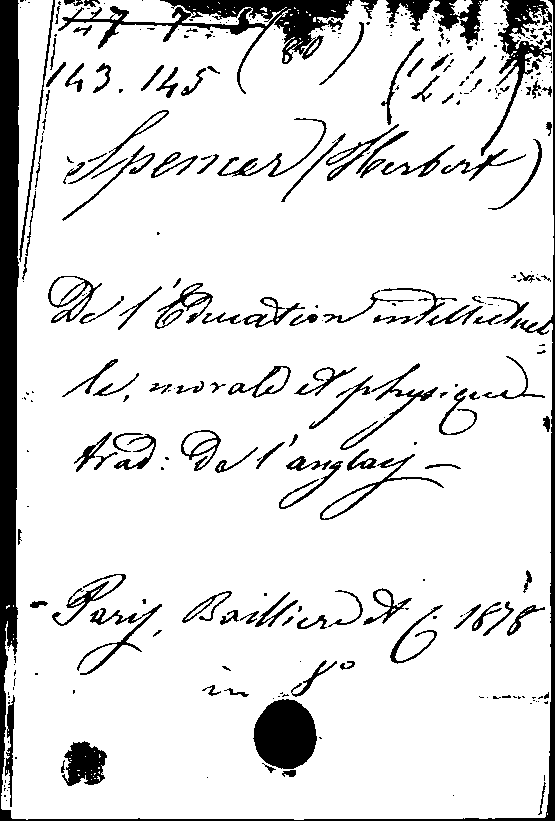 147 7 5 (80)
143.145
Spencer (Herbert)
De l'Education intellectuel-
le, morale et physique
trad: de l'anglais —
Paris, Baillière et C. 1878
in 8°